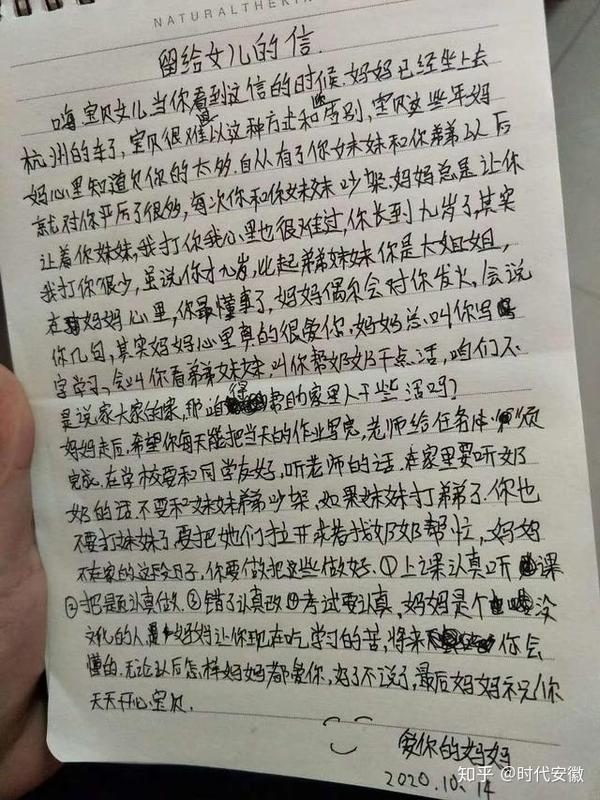 NATURALTHEKIN
留给女儿的信.
嗨宝贝女儿当你看到这信的时候.妈妈已经坐上去
杭州的车了,宝贝很难以这种方式和你告别,宝贝这些年妈
妈心里知道欠你的太多.自从有了你妹妹和你弟弟以后
就对你严厉了很多,每次你和你妹妹吵架.妈妈总是让你
让着你妹妹,我打你我心里也很难过,你长到九岁了,其实
我打你很少,虽说你才九岁,比起弟弟妹妹你是大姐姐,
在妈妈心里,你最懂事了,妈妈偶尔会对你发火,会说
你几句,其实妈妈心里真的很爱你.妈妈总叫你写
字学习,会叫你看弟弟妹妹,叫你帮奶奶干点活,咱们不
是说家大家的家,那咱得帮助家里人干些活吗?
妈妈走后,希望你每天能把当天的作业写完,老师给任务
完成.在学校要和同学友好,听老师的话.在家里要听奶
奶的话.不要和妹妹弟弟吵架,如果妹妹打弟弟了.你也
不要打妹妹了,要把她们拉开或者找奶奶帮忙,妈妈
不在家的这段日子,你要做把这些做好.①上课认真听课
②把题认真做.③错了认真改④考试要认真,妈妈是个没
文化的人,妈妈让你现在吃学习的苦,将来你会
懂的.无论以后怎样妈妈都爱你,好了不说了,最后妈妈祝你
天天开心宝贝.
爱你的妈妈
2020.10.14
知乎 @时代安徽